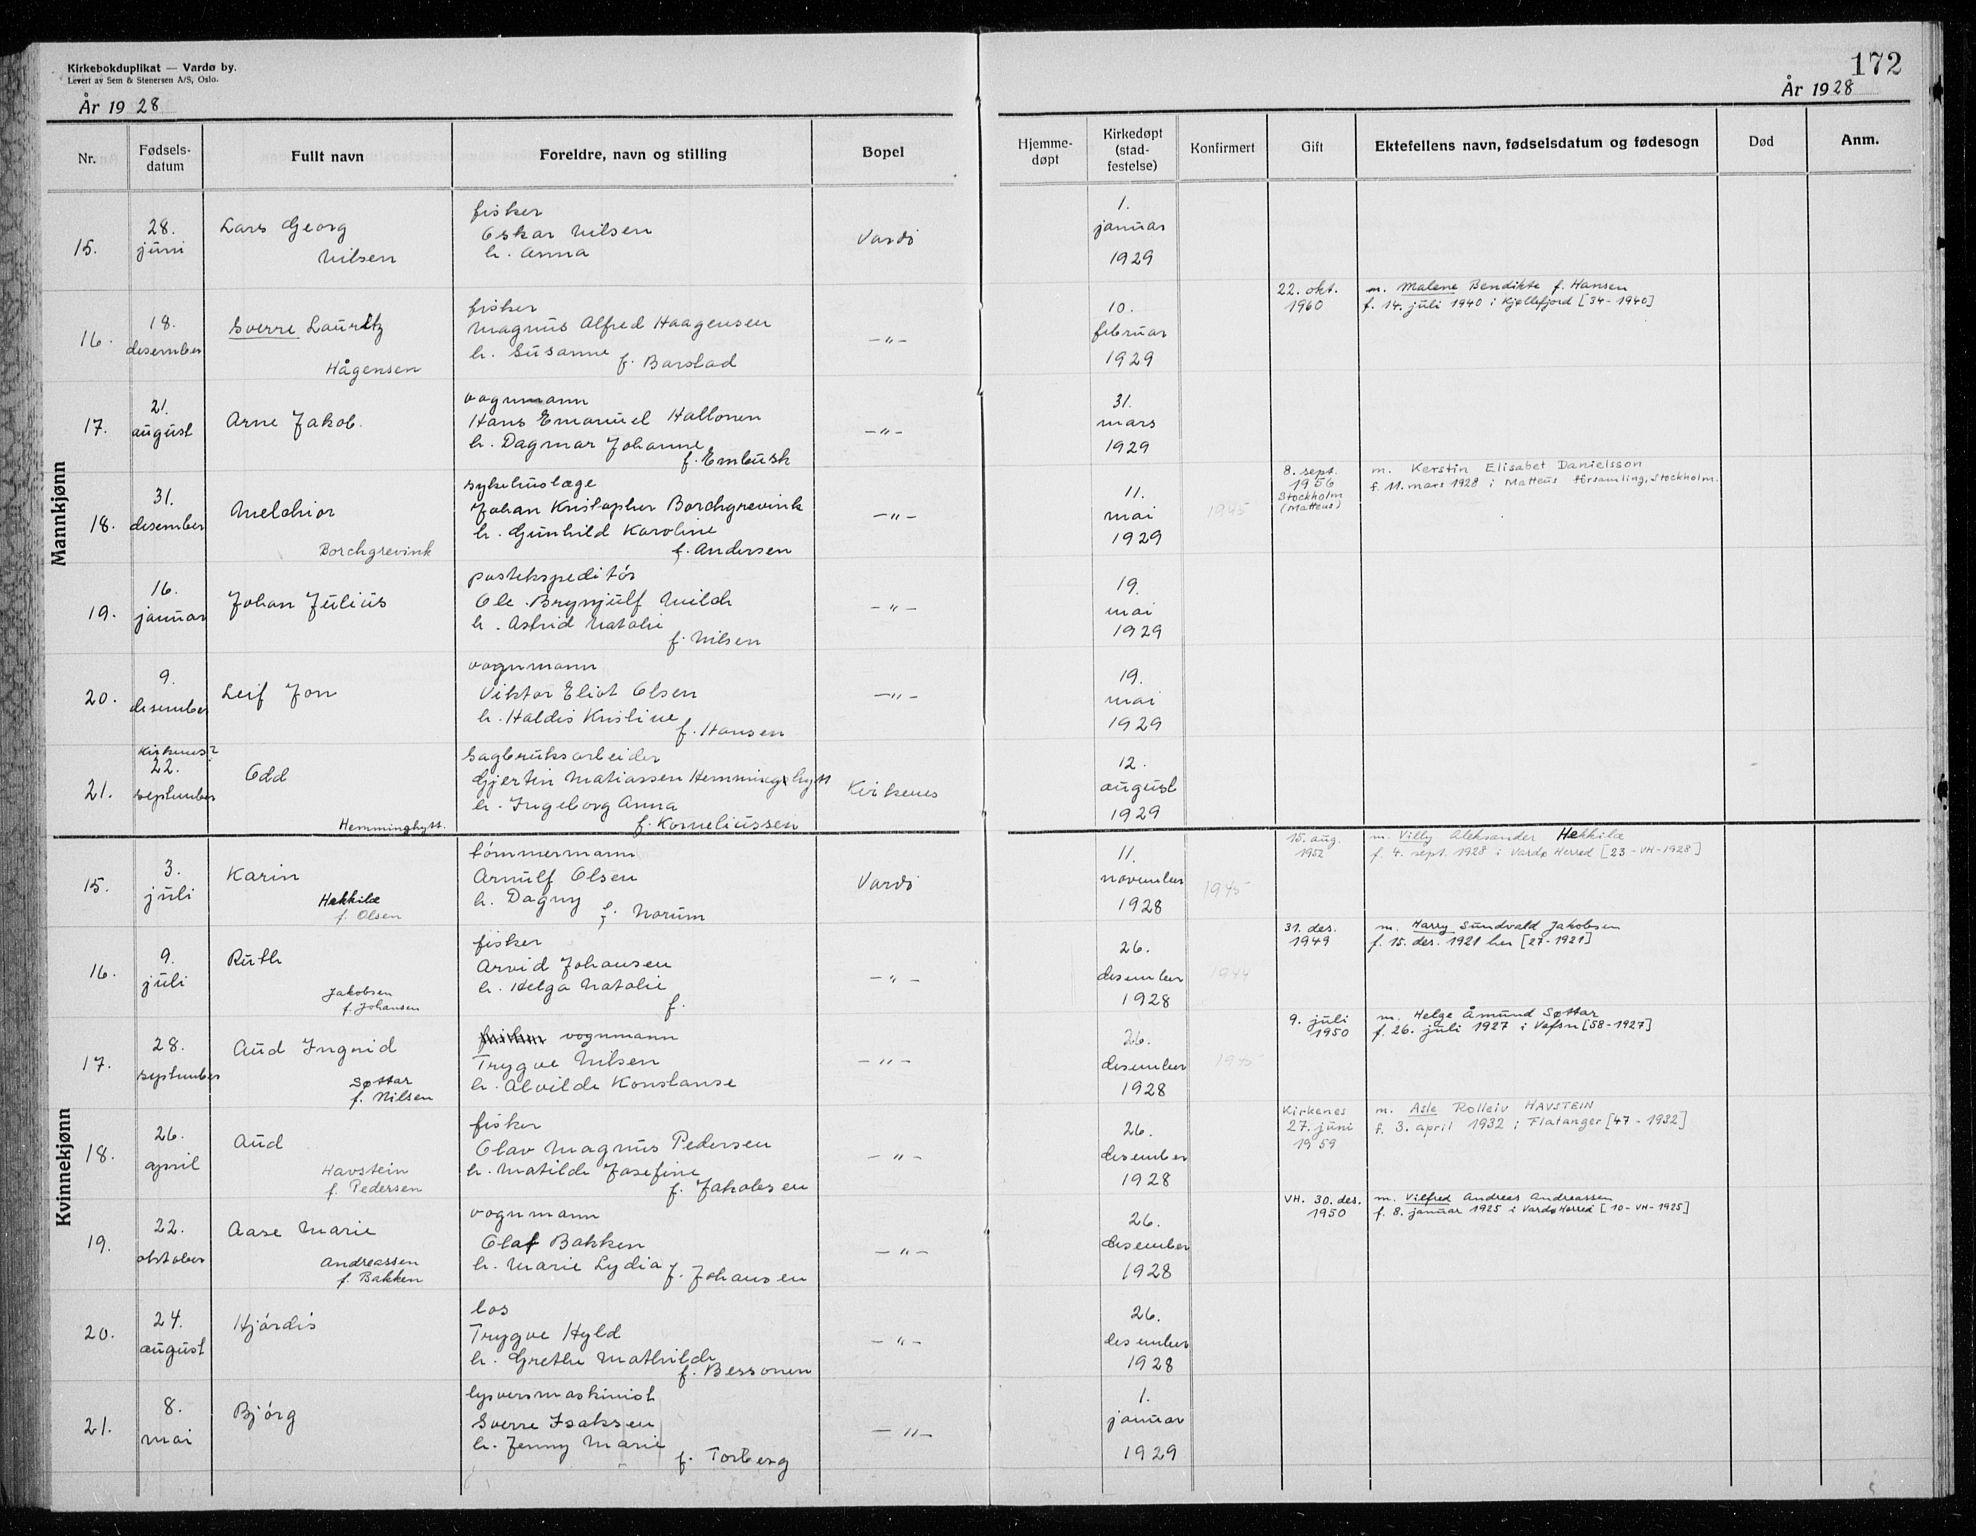 Kirkebokduplikat — Vardø by.
Levert av Sem & Stenersen A/S, Oslo.
172
År 1928
År 1928
Nr.
Fødsels-
datum
Fullt navn
Foreldre, navn og stilling
Bopel
Hjemme-
døpt
Kirkedøpt
(stad-
festelse)
Konfirmert
Gift
Ektefellens navn, fødselsdatum og fødesogn
Død
Anm.
Mannkjønn
15.
28.
juni
Lars Georg
Nilsen
fisker
Oskar Nilsen
h. Anna
Vardö
1.
januar
1929
16.
18.
desember
Sverre Lauritz
Hågensen
fisker
Magnus Alfred Haagensen
h. Susanne
f. Barstad
—"—
10.
februar
1929
22. okt.
1960
m. Malene Bendikte f. Hansen
f. 14. juli 1940 i Kjøllefjord [34-1940]
17.
21.
august
Arne Jakob.
vognmann
Hans Emanuel Hallonen
h. Dagmar Johanne
f. Embusk
—"—
31.
mars
1929
18.
31.
desember
Melchior
Borchgrevink
sykehuslæge
Johan Kristopher Borchgrevink
h. Gunhild Karoline
f. Andersen
—"—
11.
mai
1929
1945
8. sept.
1956
Stockholm
(Matteus)
m. Kerstin Elisabet Danielsson
f. 11. mars 1928 i Matteus församling, Stockholm.
19.
16.
januar
Johan Julius
postekspeditör
Ole Brynjulf Milch
h. Astrid Natalie
f. Nilsen
—"—
19.
mai
1929
20.
9.
desember
Leif Jon
vognmann
Viktor Eliot Olsen
h. Haldis Kristine
f. Hansen
—"—
19.
mai
1929
21.
Kirkenes?
22.
september
Odd
Hemminghytt.
Sagbruksarbeider
Gjertin Matiassen Hemminghytt
h. Ingeborg Anna
f. Korneliussen
Kirkenes
12.
august
1929
Kvinnekjønn
15.
3.
juli
Karin
Hekkilæ
f. Olsen
tömmermann
Arnulf Olsen
h. Dagny
f. Norum
Vardö
11.
november
1928
1945
15. aug.
1952
m. Villy Aleksander Hekkilæ
f. 4. sept. 1928 i Vardø Herred [23-VH-1928]
16.
9.
juli
Ruth
Jakobsen
f. Johansen
fisker
Arvid Johansen
h. Helga Natalie
f.
—"—
26.
desember
1928
1944
31. des.
1949
m. Harry Sundvald Jakobsen
f. 15. des. 1921 her [27-1921]
17.
28.
september
Aud Ingrid
Søttar
f. Nilsen
vognmann
Trygve Nilsen
h. Alvilde Konstanse
—"—
26.
desember
1928
1945
9. juli
1950
m. Helge Åmund Søttar
f. 26. juli 1927 i Vefsn [58-1927]
18.
26.
april
Aud
Havstein
f. Pedersen
fisker
Olav Magnus Pedersen
h. Matilde Josefine
f. Jakobsen
—"—
26.
desember
1928
Kirkenes
27. juni
1959
m. Asle Rolleiv HAVSTEIN
f. 3. april 1932 i Flatanger [47-1932]
19.
22.
oktober
Aase Marie
Andreassen
f. Bakken
vognmann
Olaf Bakken
h. Marie Lydia
f. Johansen
—"—
26.
desember
1928
VH. 30. des.
1950
m. Vilfred Andreas Andreassen
f. 8. januar 1925 i Vardø Herred [10-VH-1925]
20.
24.
august
Hjördis
los
Trygve Hyld
h. Grethe Mathilde
f. Bessonen
—"—
26.
desember
1928
21.
8.
mai
Bjórg
lysversmaskinist
Sverre Isaksen
h. Jenny Marie
f. Torberg
—"—
1.
januar
1929